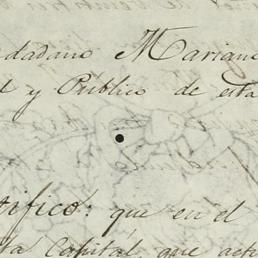 dadano Mariano
l y Publico de esta
tifico: que en el
la Capital, que actu